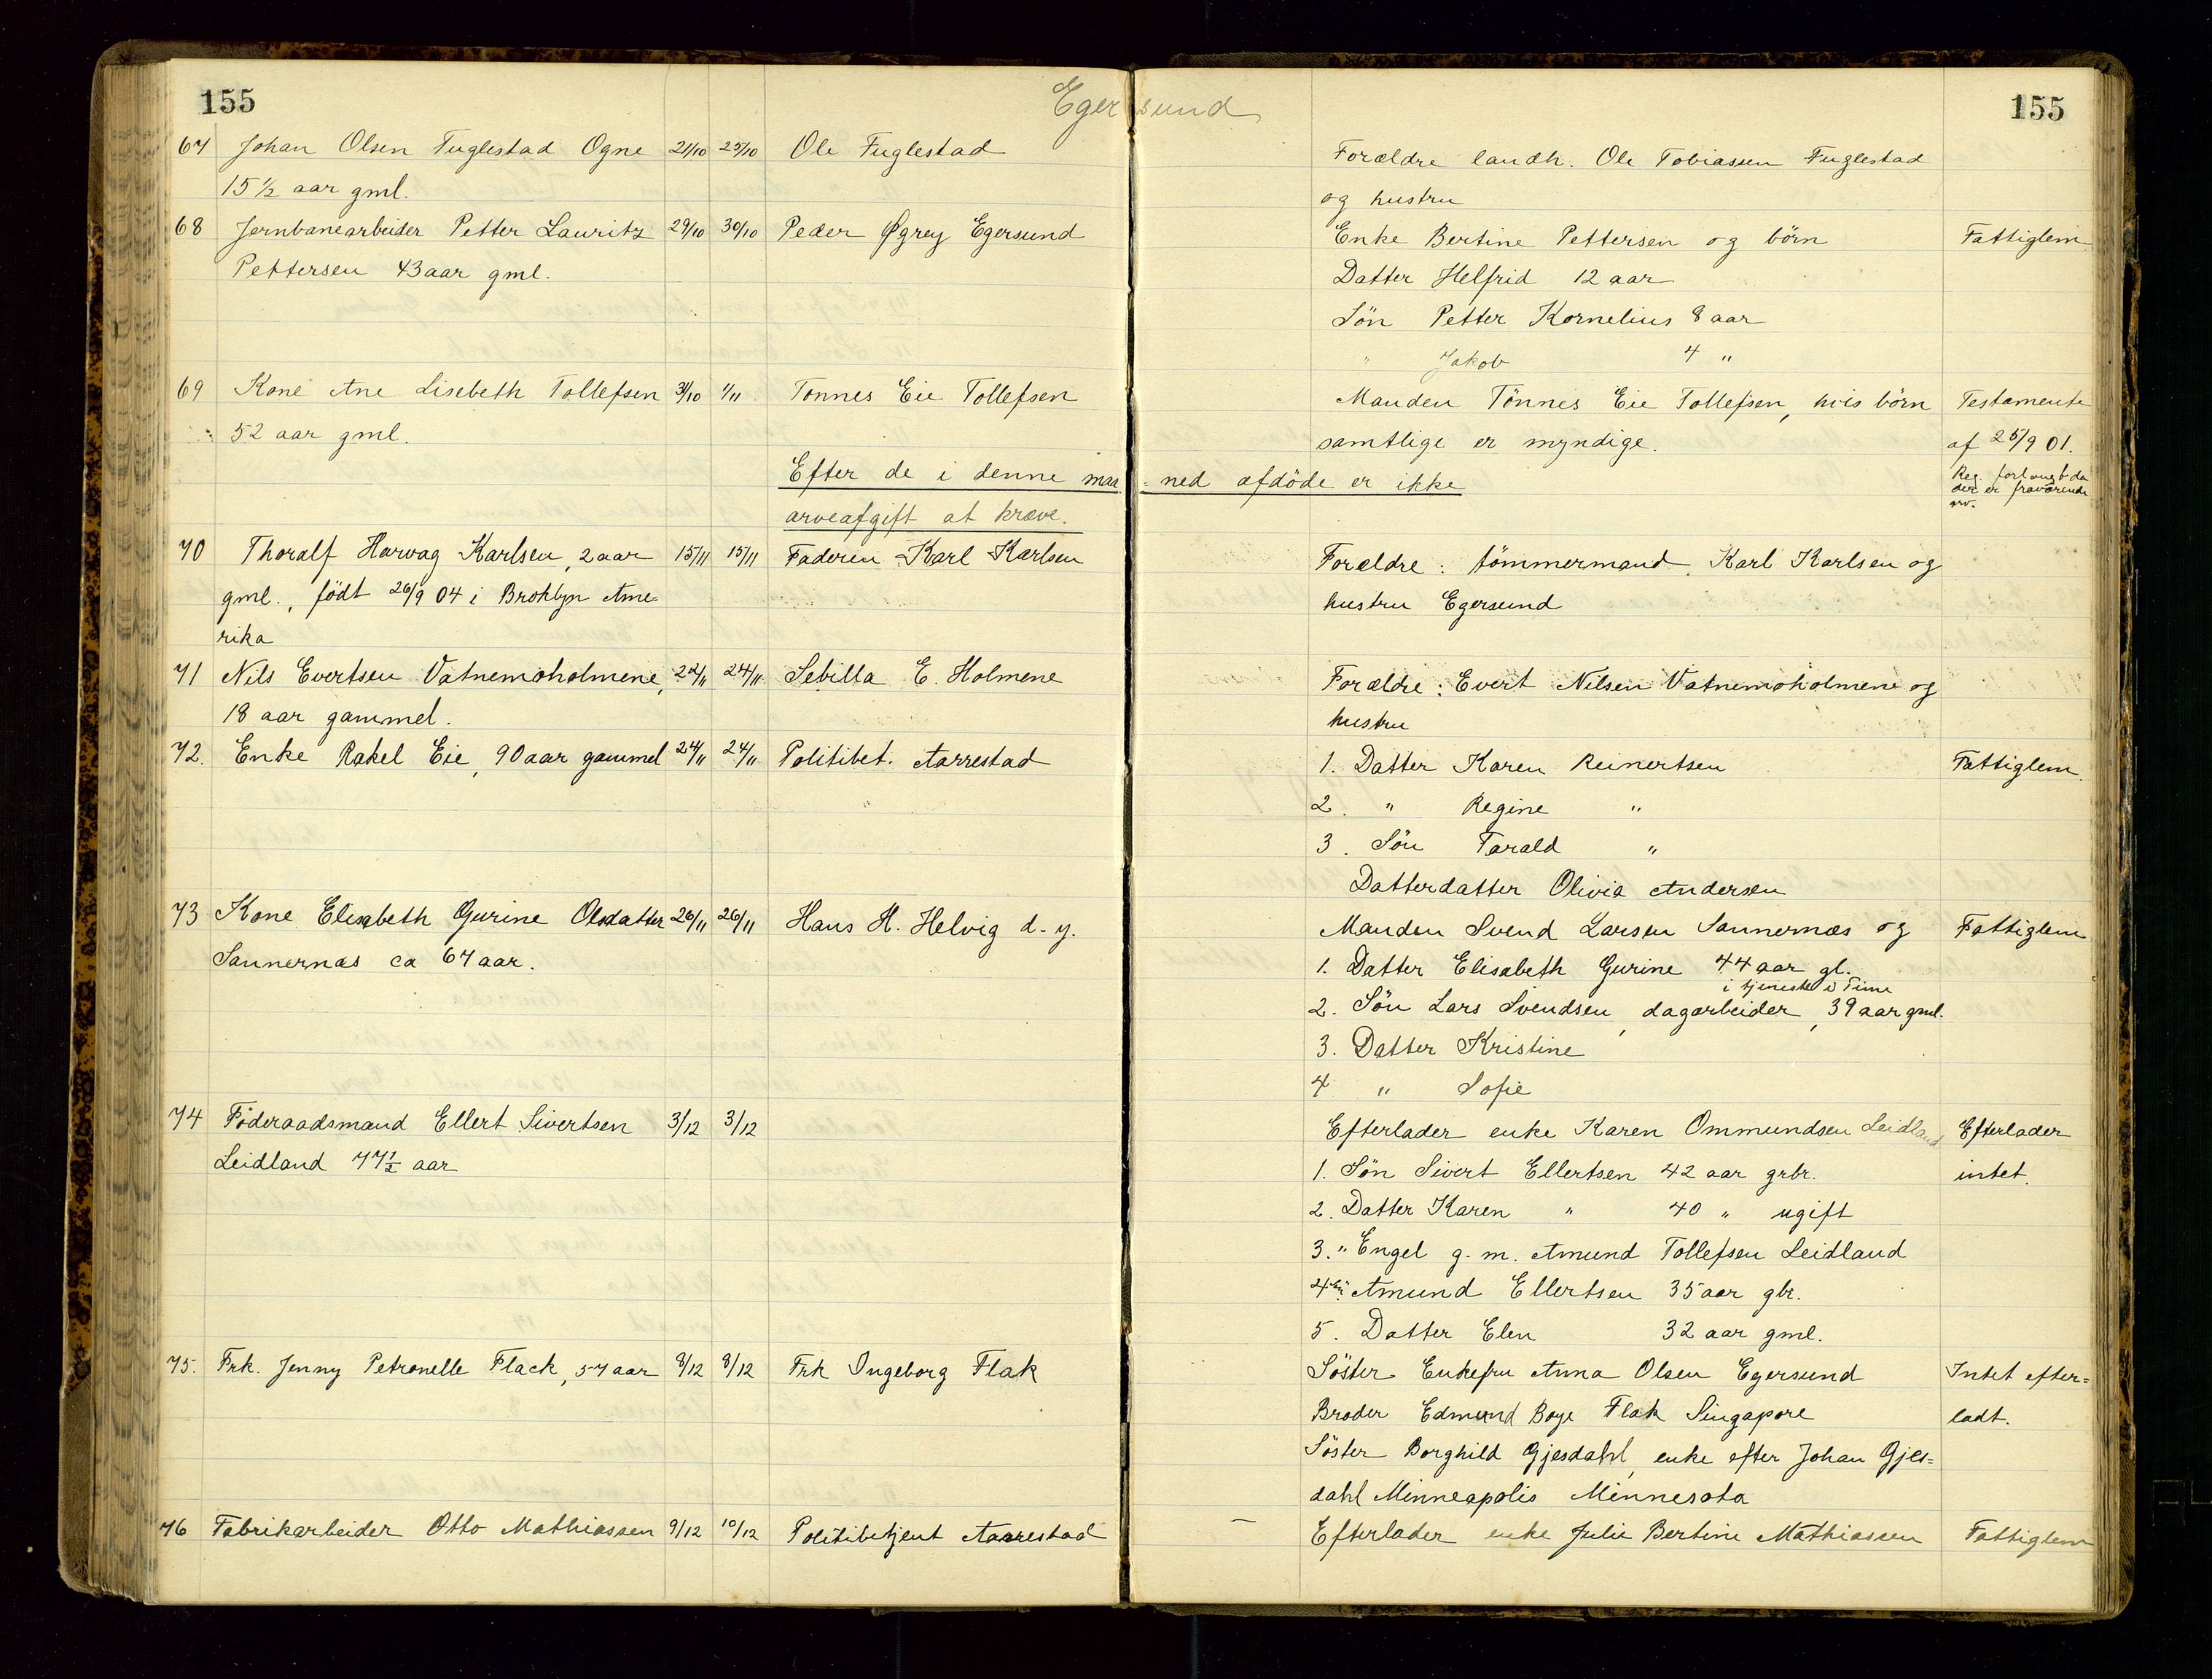 155
Egersund
155
67 Johan Olsen Fuglestad Ogne 21/10 25/10 Ole Fuglestad
15 1/2 aar gml.
Forældre landh. Ole Tobiassen Fuglestad
og hustru
68 Jernbanearbeider Petter Lauritz 29/10 30/10 Peder Øgrey Egersund
Pettersen 43 aar gml.
Enke Bertine Pettersen og börn Fattiglem
Datter Helfrid 12 aar
Sön Petter Kornelius 8 aar
" Jakob 4 "
69 Kone Ane Lisebeth Tollefsen 31/10 1/11 Tönnes Eie Tollefsen
52 aar gml.
Manden Tönnes Eie Tollefsen, hvis börn Testamente
samtlige er myndige. af 25/9 01.
Reg. forlangt da
der er fraværende
arv.
Efter de i denne maa=ned afdöde er ikke
arveafgift at kræve.
70 Thoralf Harvag Karlsen, 2 aar 15/11 15/11 Faderen Karl Karlsen
gml., födt 26/9 04 i Broklyn Ame=
rika
Forældre: tömmermand Karl Karlsen og
hustru Egersund
71 Nils Evertsen Vatnemoholmene, 22/11 24/11 Sebilla E. Holmene
18 aar gammel.
Forældre: Evert Nilsen Vatnemoholmene og
hustru
72. Enke Rakel Eie, 90 aar gammel 24/11 24/11 Politibet. Aarrestad
1. Datter Karen Reinertsen Fattiglem.
2. " Regine "
3. Sön Tarald "
Datterdatter Olivia Andersen
73 Kone Elisabeth Gurine Olsdatter 26/11 26/11 Hans H. Helvig d.y.
Sannernæs ca 67 aar.
Manden Svend Larsen Sannernæs og Fattiglem
1. Datter Elisabeth Gurine 44 aar gl.
i tjeneste i Time
2. Sön Lars Svendsen, dagarbeider, 39 aar gml.
3. Datter Kristine
4 " Sofie
74 Föderaadsmand Ellert Sivertsen 3/12 3/12
Leidland 77 1/2 aar
Efterlader enke Karen Ommundsen Leidland Efterlader
1. Sön Sivert Ellertsen 42 aar grbr. intet.
2. Datter Karen " 40 " ugift
3. " Engel g. m. Amund Tollefsen Leidland
4 Sön Amund Ellertsen 35 aar gbr.
5. Datter Elen 32 aar gml.
75. Frk. Jenny Petronelle Flack, 57 aar 8/12 8/12 Frk Ingeborg Flak
Söster Enkefru Anna Olsen Egersund Intet efter=
Broder Edmund Boye Flak Singapore ladt.
Söster Borghild Gjesdahl, enke efter Johan Gjes=
dahl Minneapolis Minnesota
76 Fabrikarbeider Otto Mathiassen 9/12 10/12 Politibetjent Aarrestad
— Efterlader enke Julie Bertine Mathiassen Fattiglem